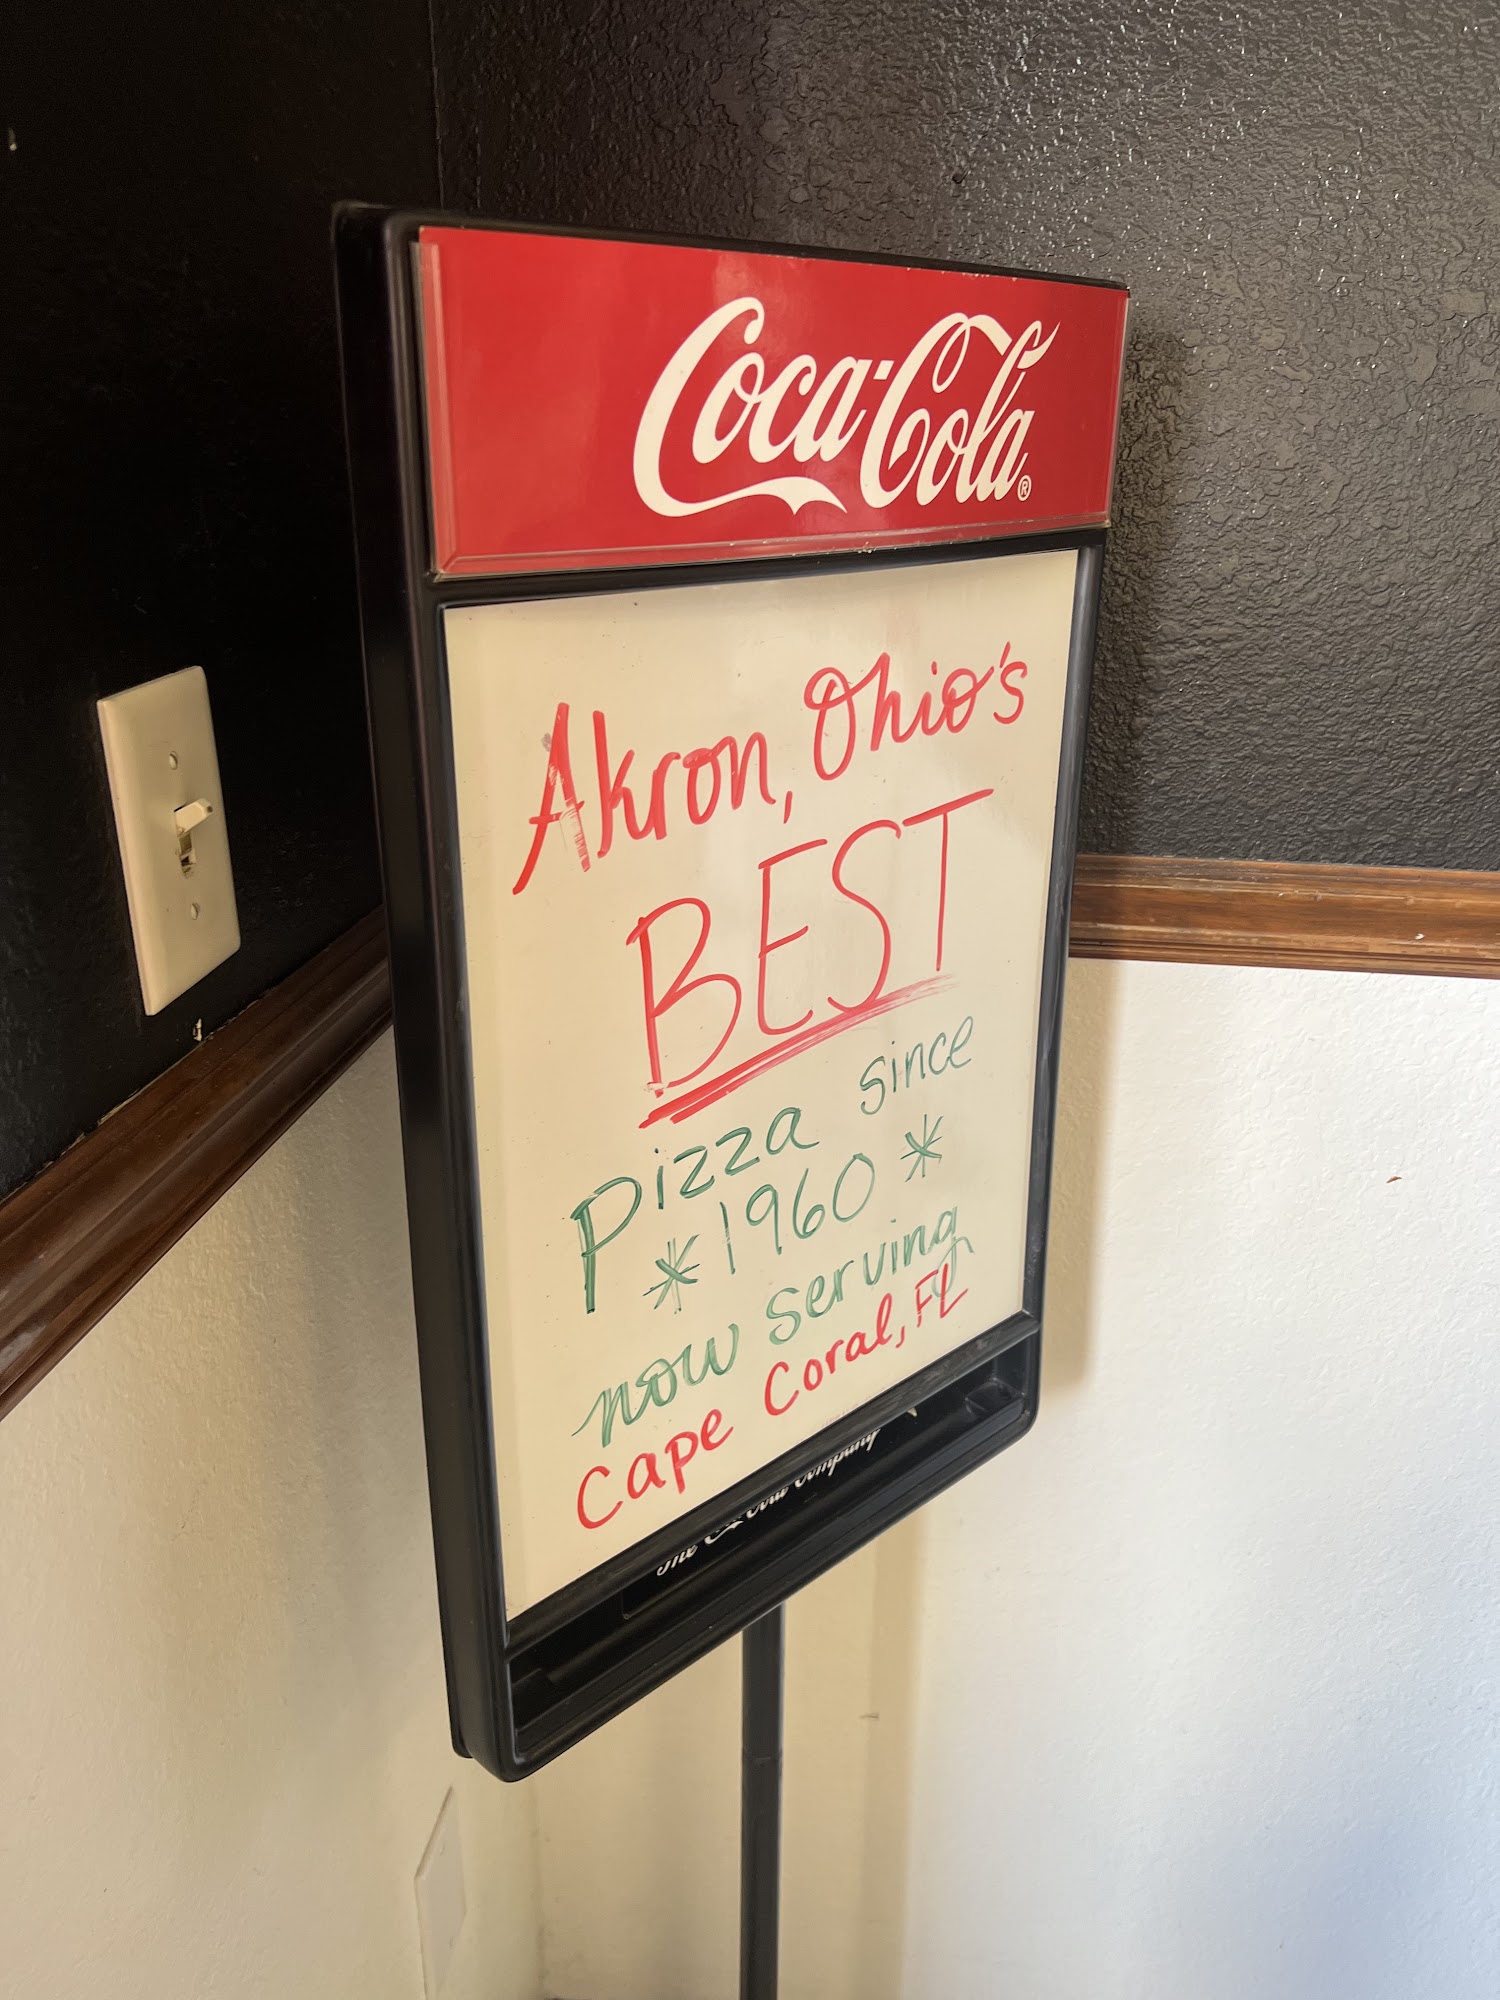 Coca-Cola®
Akron, Ohio's
BEST
Pizza since
*1960*
now serving
Cape Coral, FL
The Coca-Cola Company